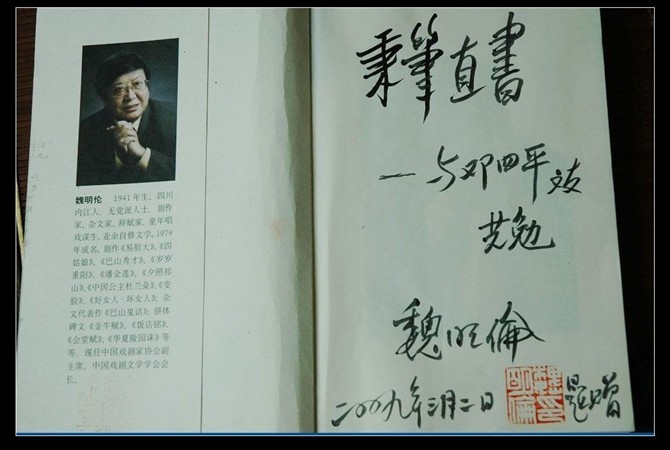 魏明伦 1941年生,四川
内江人。无党派人士。剧作
家,杂文家,辞赋家。童年唱
戏谋生,业余自修文学,1979
年成名。剧作《易胆大》、《四
姑娘》、《巴山秀才》、《岁岁
重阳》、《潘金莲》、《夕照祁
山》、《中国公主杜兰朵》、《变
脸》、《好女人·坏女人》;杂
文代表作《巴山鬼话》;骈体
碑文《金牛赋》、《饭店铭》、
《会堂赋》、《华夏陵园诔》等
等。现任中国戏剧家协会副
主席,中国戏剧文学学会会
长。
秉筆直書
—与邓四平友
共勉
魏明倫
二00九年三月二日
魏明倫印
题赠